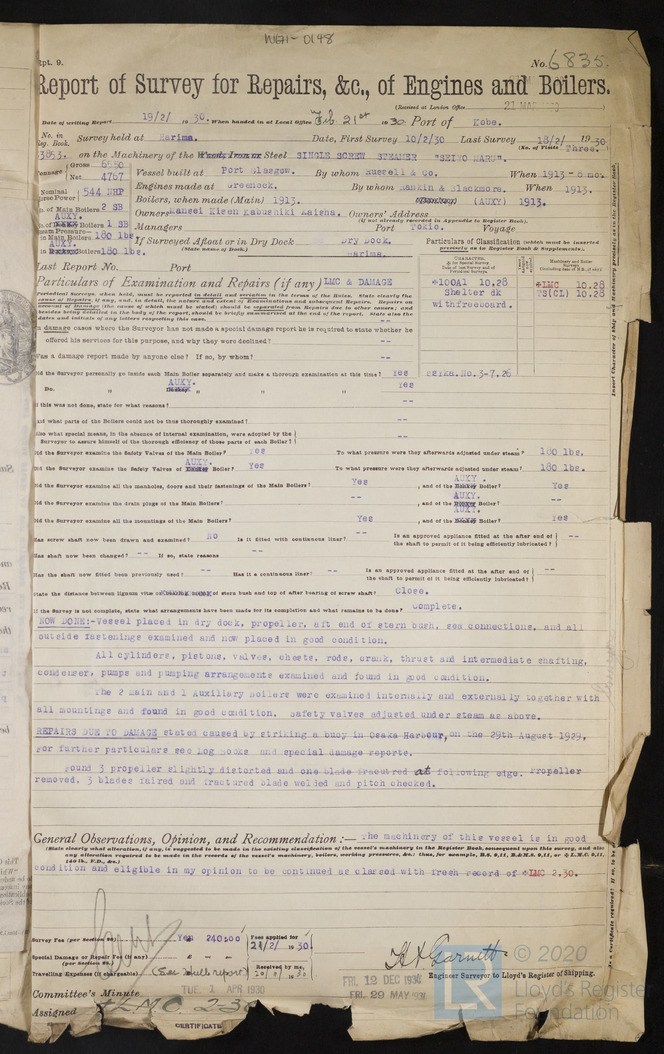 W671-0148
Rpt. 9.
No. 6835
Report of Survey for Repairs, &c., of Engines and Boilers.
(Received at London Office
Date of writing Report 19/2/ 19 30. When handed in at Local Office Feb 21st 1930 Port of Kobe.
No. in Reg. Book. Survey held at Harima. Date, First Survey 10/2/30 Last Survey 18/2/ 1930
(No. of Visits Three.)
3853. on the Machinery of the Wood, Iron or Steel SINGLE SCREW STEAMER "SEIYO MARU".
Tonnage Gross 6550 Net 4767
Vessel built at Port Glasgow. By whom Russell & Co. When 1913 - 8 mos
Nominal Horse Power 544 NHP
Engines made at Greenock. By whom Rankin & Blackmore. When 1913.
Boilers, when made (Main) 1913. (AUXY) 1913.
No. of Main Boilers 2 SB
AUXY.
No. of Donkey Boilers 1 SB
Owners Owners' Address
(if not already recorded in Appendix to Register Book).
Steam Pressure in Main Boilers 180 lbs.
Managers Port Tokio. Voyage
AUXY.
in Donkey Boilers 180 lbs.
If Surveyed Afloat or in Dry Dock Dry Dock,
(State name of Dock.) Harima.
Particulars of Classification (which must be inserted precisely as in Register Book & Supplements).
Last Report No. Port
Particulars of Examination and Repairs (if any) LMC & DAMAGE
+100A1 10.28
Shelter dk
with freeboard.
+LMC 10.28
TS(CL) 10.28
In damage cases where the Surveyor has not made a special damage report he is required to state whether he
offered his services for this purpose, and why they were declined? --
Was a damage report made by anyone else? If so, by whom? --
Did the Surveyor personally go inside each Main Boiler separately and make a thorough examination at this time? Yes
Do. AUXY. Donkey " " " Yes
If this was not done, state for what reasons? --
And what parts of the Boilers could not be thus thoroughly examined? --
Also what special means, in the absence of internal examination, were adopted by the Surveyor to assure himself of the thorough efficiency of those parts of each Boiler? --
Did the Surveyor examine the Safety Valves of the Main Boiler? Yes To what pressure were they afterwards adjusted under steam? 180 lbs.
Did the Surveyor examine the Safety Valves of AUXY. Donkey Boiler? Yes To what pressure were they afterwards adjusted under steam? 180 lbs.
Did the Surveyor examine all the manholes, doors and their fastenings of the Main Boilers? Yes , and of the AUXY. Donkey Boiler? Yes
Did the Surveyor examine the drain plugs of the Main Boilers? -- , and of the AUXY. Donkey Boiler? --
Did the Surveyor examine all the mountings of the Main Boilers? Yes , and of the AUXY. Donkey Boiler? Yes
Has screw shaft now been drawn and examined? No Is it fitted with continuous liner? -- Is an approved appliance fitted at the after end of the shaft to permit of it being efficiently lubricated? --
Has shaft now been changed? -- If so, state reasons --
Has the shaft now fitted been previously used? -- Has it a continuous liner? -- Is an approved appliance fitted at the after end of the shaft to permit of it being efficiently lubricated? --
State the distance between lignum vitæ of stern bush and top of after bearing of screw shaft? Close.
If the Survey is not complete, state what arrangements have been made for its completion and what remains to be done? Complete.
NOW DONE:-Vessel placed in dry dock, propeller, aft end of stern bush, sea connections, and all
outside fastenings examined and now placed in good condition.
All cylinders, pistons, valves, chests, rods, crank, thrust and intermediate shafting,
condenser, pumps and pumping arrangements examined and found in good condition.
The 2 Main and 1 Auxiliary boilers were examined internally and externally together with
all mountings and found in good condition. Safety valves adjusted under steam as above.
REPAIRS DUE TO DAMAGE stated caused by striking a buoy in Osaka Harbour, on the 29th August 1929,
For further particulars see Log Books and special damage reports.
Found 3 propeller slightly distorted and one blade fractured at following edge. Propeller
removed, 3 blades faired and fractured blade welded and pitch checked.
General Observations, Opinion, and Recommendation :— The machinery of this vessel is in good
(State clearly what alteration, if any, is suggested to be made in the existing classification of the vessel's machinery in the Register Book, consequent upon this survey, and also
any alteration required to be made in the records of the vessel's machinery, boilers, working pressures, &c.: thus, for example, B.S. 9,11, B.&M.S. 9,11, or + L.M.C. 9,11,
140 lb., F.D., &c.)
condition and eligible in my opinion to be continued as classed with fresh record of +LMC 2.30.
Survey Fee (per Section 28) Yen 240:00 Fees applied for 21/2/ 1930.
Special Damage or Repair Fee (if any) (per Section 28.)
Received by me,
Travelling Expenses (if chargeable) (See Hull report)
H. Garnett
Engineer Surveyor to Lloyd's Register of Shipping.
FRI. 12 DEC 1930
Committee's Minute TUE. 1 APR 1930
FRI. 29 MAY 1931
Assigned + LMC 2.30
CERTIFICATE
© 2020
Lloyd's Register
Foundation